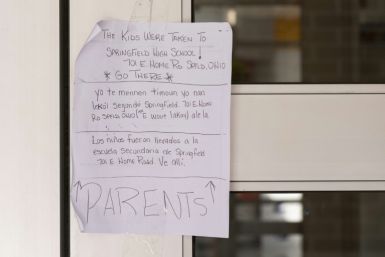 THE KIDS WERE TAKEN TO
SPRINGFIELD HIGH SCHOOL ↓
701 E. HOME RD SPFLD, OHIO
* GO THERE *
yo te mennen timoun yo nan
lekòl segondè Springfield. 701 E. Home
Rd
E wout lakay ale la.
Los niños fueron llevados a la
escuela secundaria de Springfield
701 E. Home Road. Ve allí.
↑ PARENTS ↑